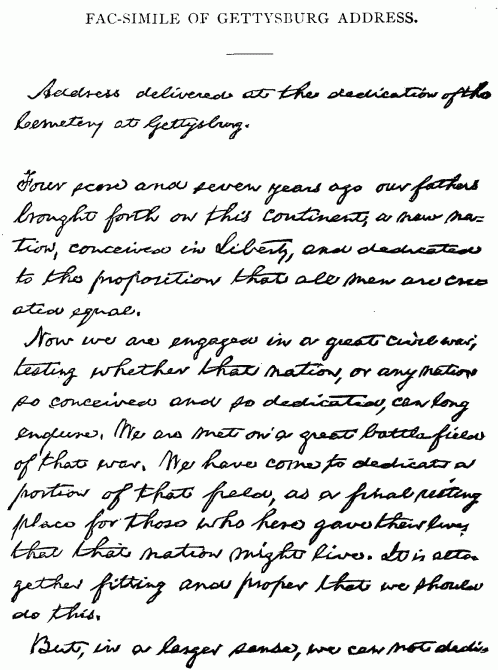 FAC-SIMILE OF GETTYSBURG ADDRESS.
Address delivered at the dedication of the
Cemetery at Gettysburg.
Four score and seven years ago our fathers
brought forth on this continent, a new na=
tion, conceived in Liberty, and dedicated
to the proposition that all men are cre=
ated equal.
Now we are engaged in a great civil war,
testing whether that nation, or any nation
so conceived and so dedicated, can long
endure. We are met on a great battle field
of that war. We have come to dedicate a
portion of that field, as a final resting
place for those who here gave their lives
that that nation might live. It is alto=
gether fitting and proper that we should
do this.
But, in a larger sense, we can not dedi=